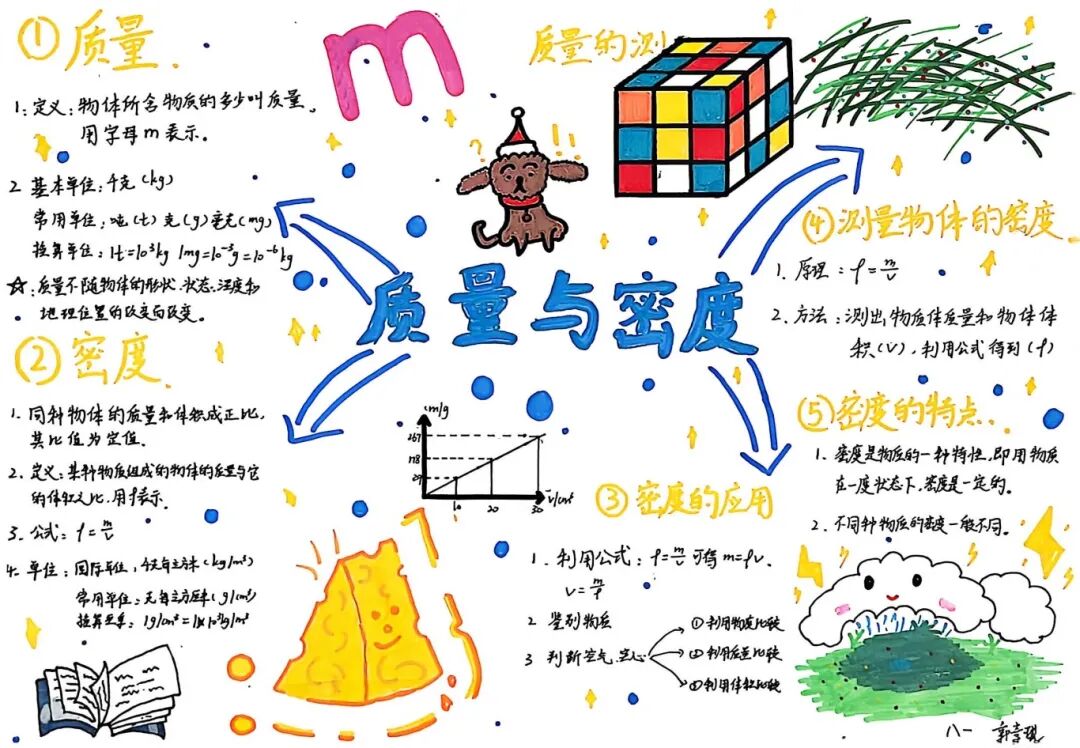 ① 质量
1.定义:物体所含物质的多少叫质量。
用字母m表示。
2 基本单位:千克(kg)
常用单位:吨(t)克(g)毫克(mg)
换算单位:1t=10³kg 1mg=10⁻³g=10⁻⁶kg
☆:质量不随物体的形状、状态、温度和
地理位置的改变而改变。
② 密度
1.同种物体的质量和体积成正比,
其比值为定值。
2.定义:某种物质组成的物体的质量与它
的体积之比,用ρ表示.
3.公式:ρ=m/v
4.单位:国际单位,千克每立方米(kg/m³)
常用单位:克每立方厘米(g/cm³)
换算 1g/cm³=
m
? ! !!
质量的测
质量与密度
m/g
267
178
89
10 20 30 v/cm³
③ 密度的应用
1.利用公式:ρ=m/v可得m=ρv.
v=m/ρ
2 鉴别物质
3 判断空气,空心
①利用密度比较
②利用质量比较
③利用体积比较
④测量物体的密度
1.原理:ρ=m/v
2.方法:测出物质体质量和物体体
积(v),利用公式得到(ρ)
⑤密度的特点
1.密度是物质的一种特性,即用物质
在一度状态下,密度是一定的。
2.不同种物质的密度一般不同。
八一